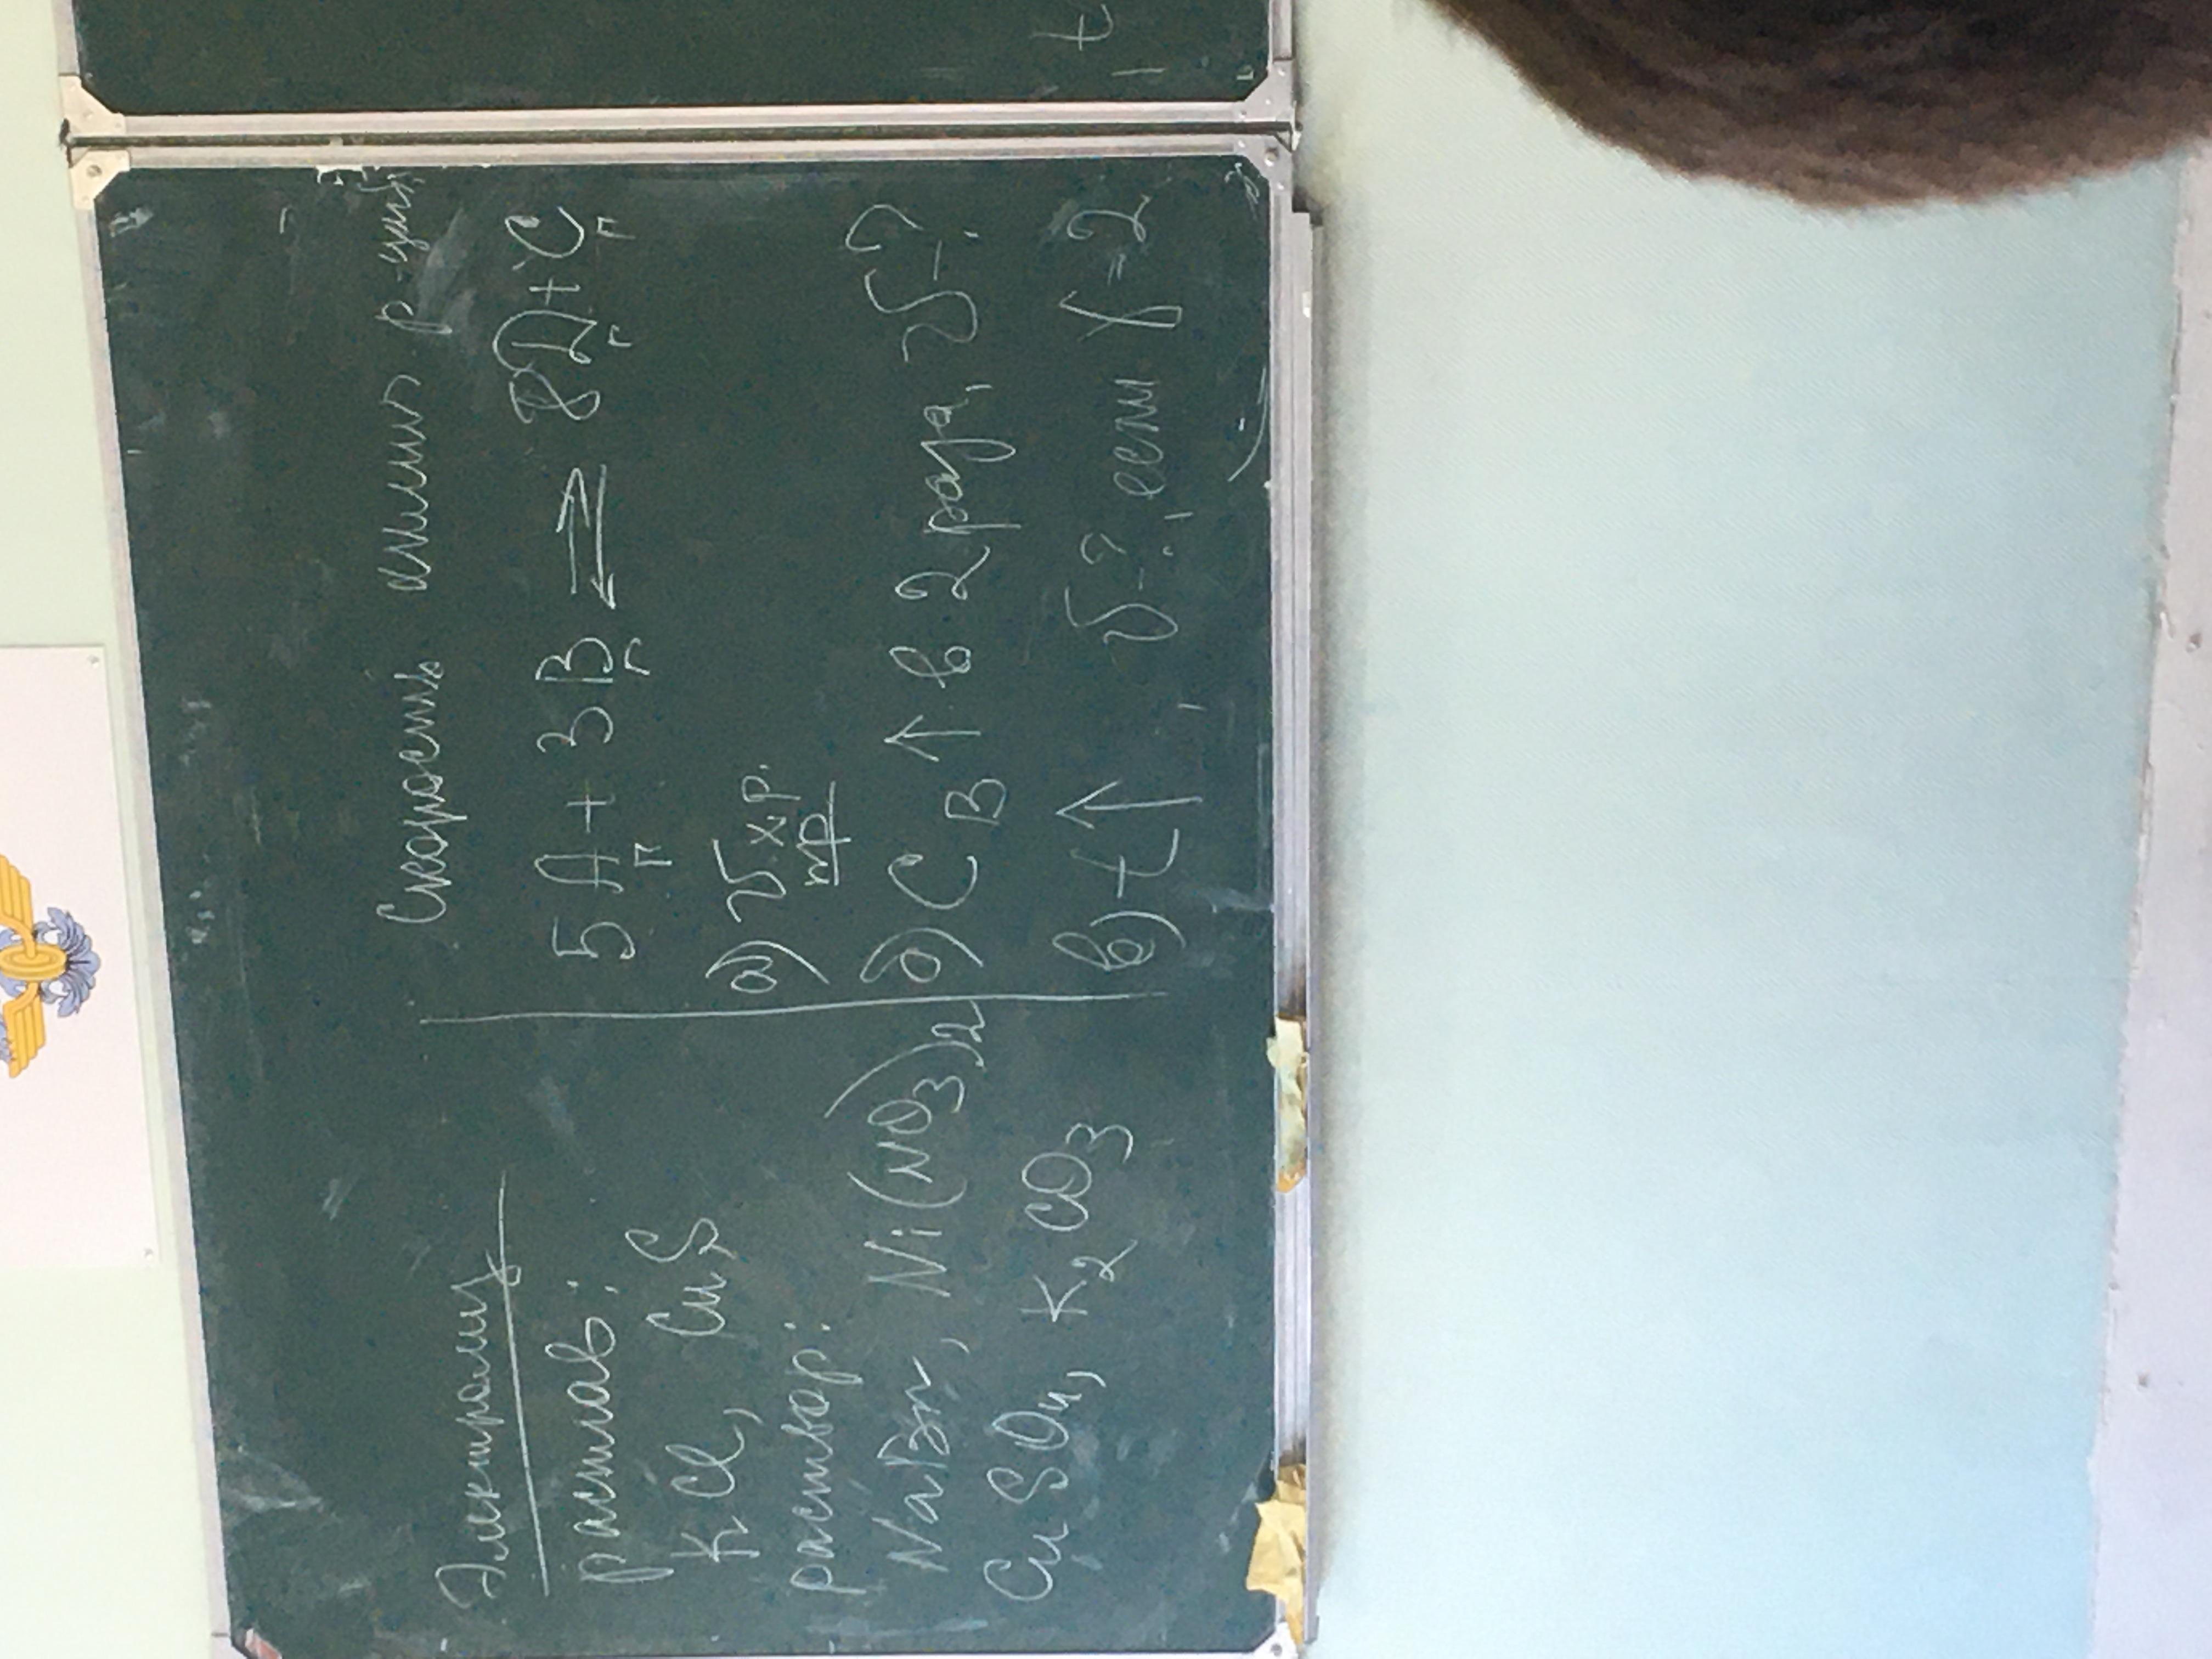 Электролиз
расплав:
KCl, CuS
раствор:
NaBr, Ni(NO3)2
CuSO4, K2CO3
Скорость химич р-ций
5A + 3B ⇄ 8D + C
г г г г
а) υ х.р.
пр
б) C B ↑ в 2 раза, υ-?
в) t↑, υ-?, если γ=2
t